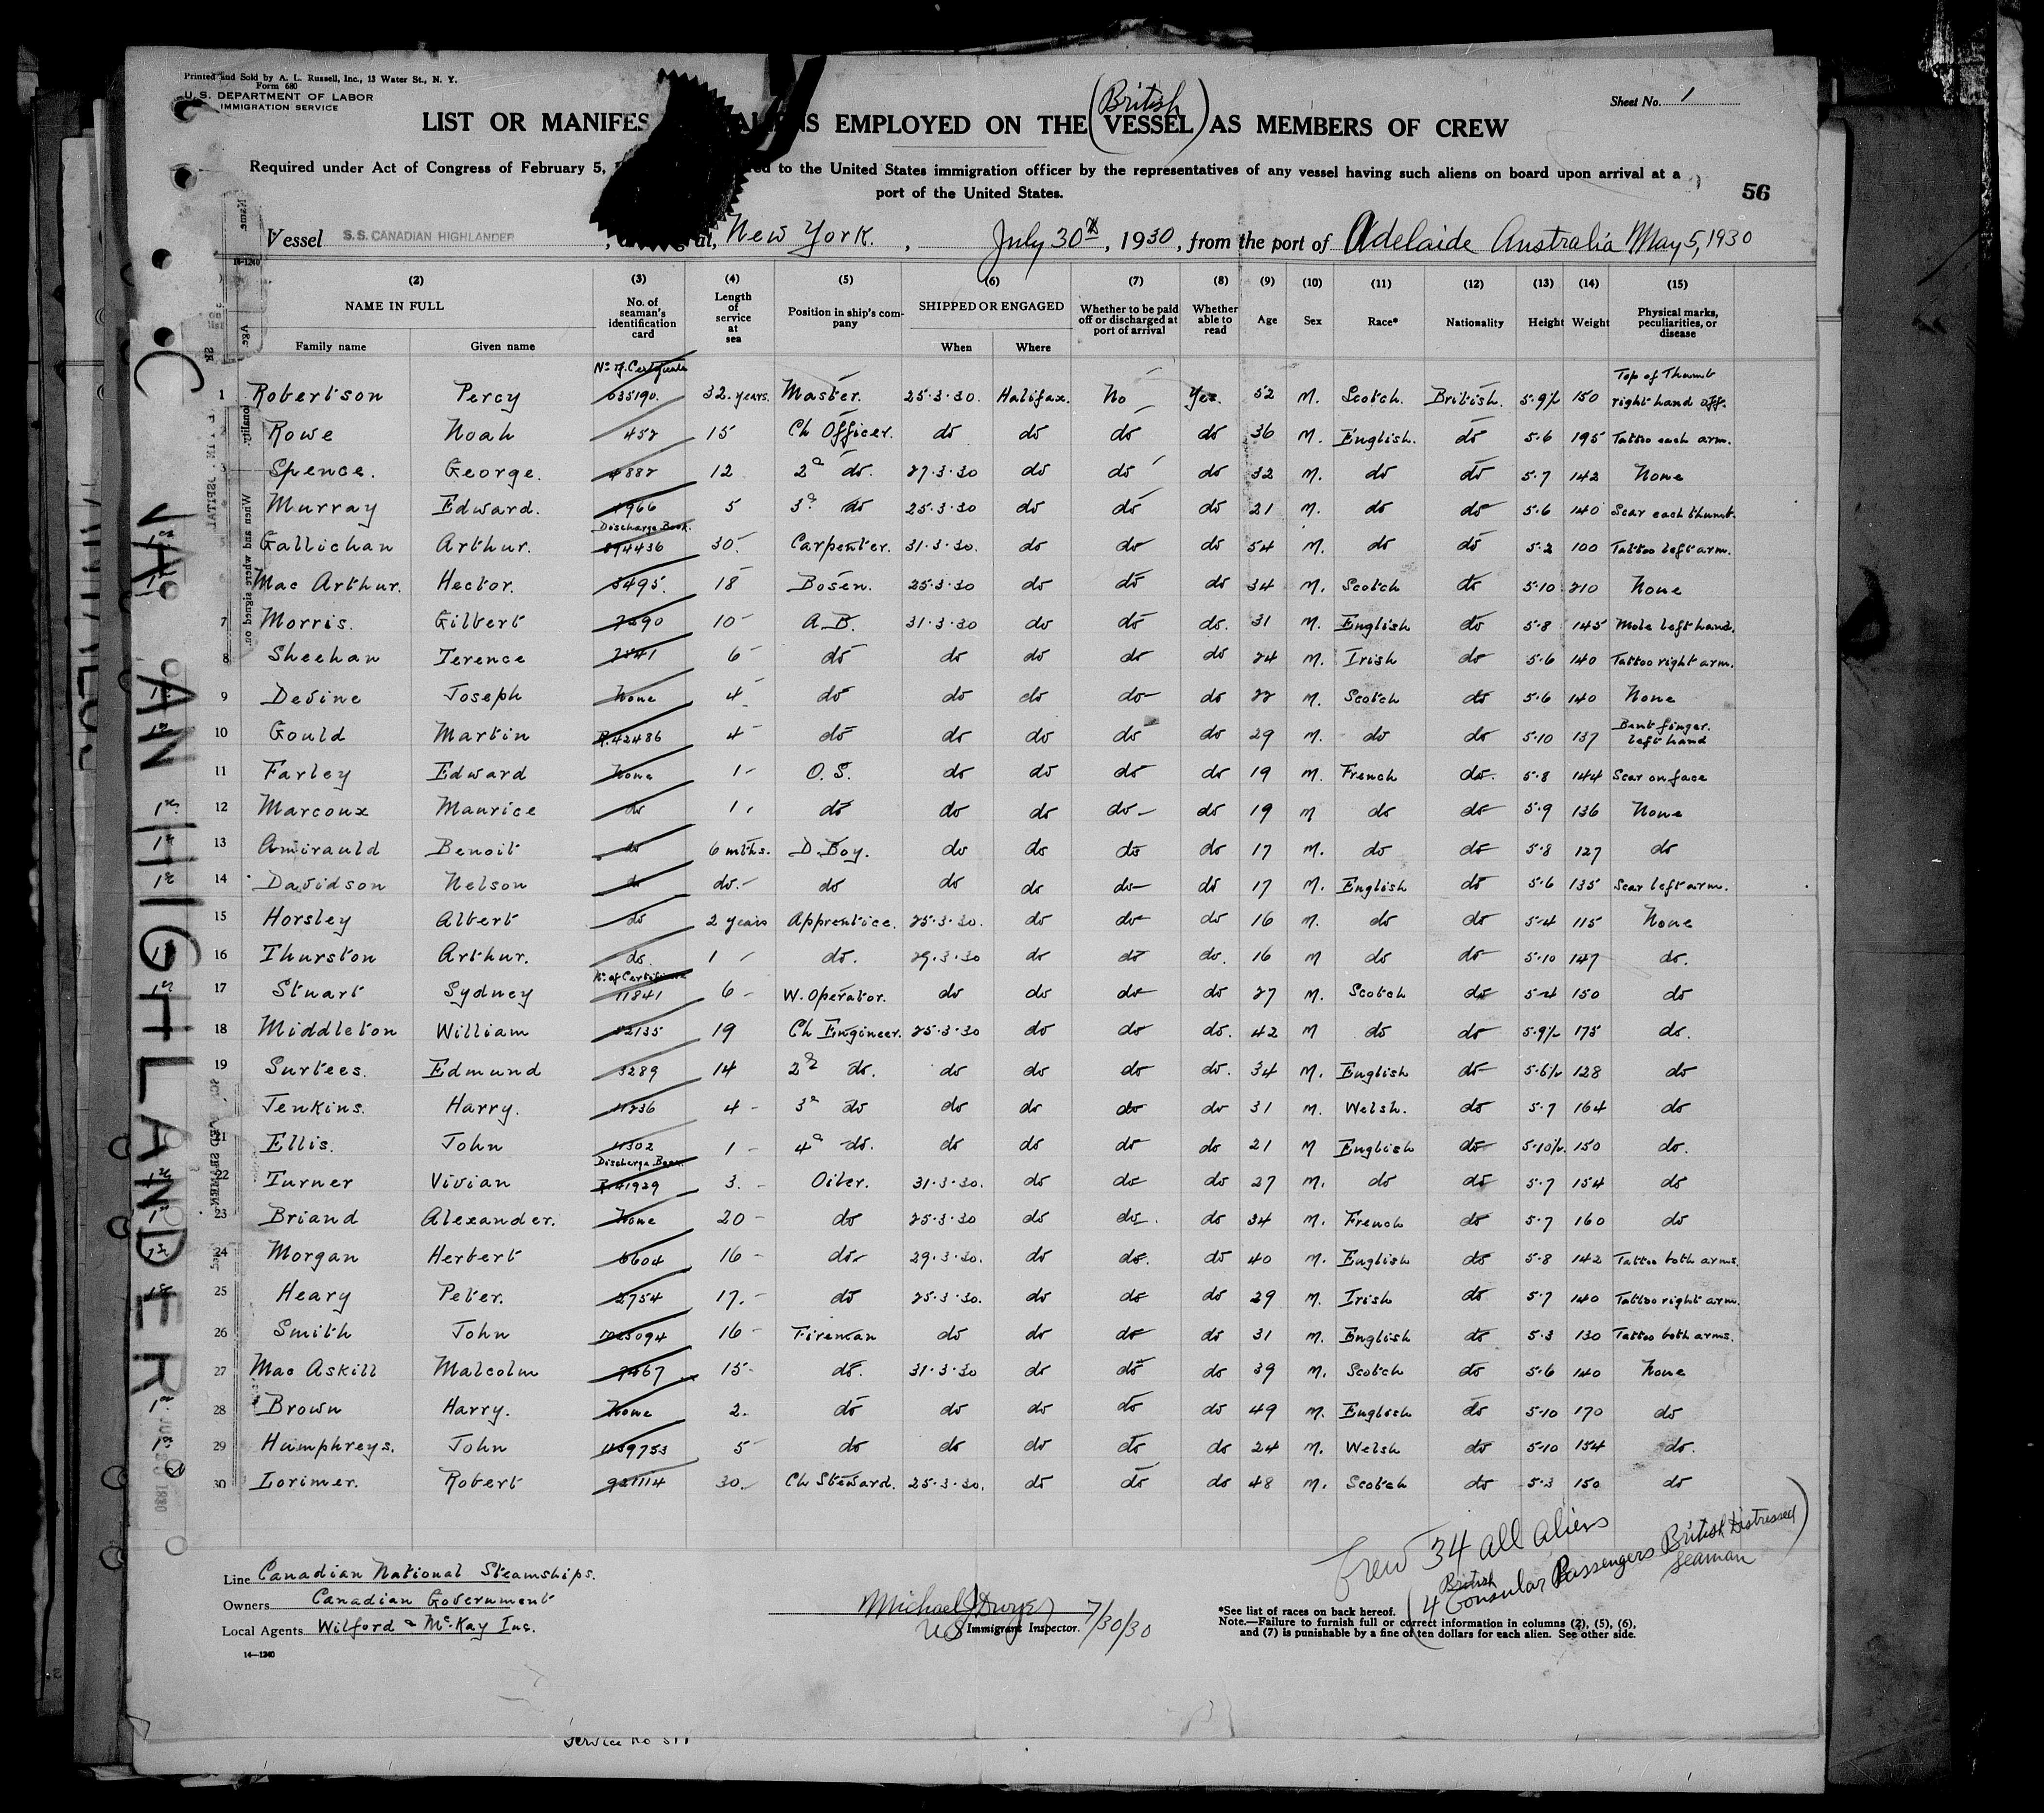 Printed and Sold by A. L. Russell, Inc., 13 Water St., N. Y.
Form 680
U. S. DEPARTMENT OF LABOR
IMMIGRATION SERVICE
Sheet No. 1
(British)
LIST OR MANIFES ALIENS EMPLOYED ON THE VESSEL AS MEMBERS OF CREW
Required under Act of Congress of February 5, ed to the United States immigration officer by the representatives of any vessel having such aliens on board upon arrival at a
port of the United States.
56
Vessel S.S. CANADIAN HIGHLANDER, at, New York., July 30th, 1930, from the port of Adelaide Australia May 5, 1930
(2) (3) (4) (5) (6) (7) (8) (9) (10) (11) (12) (13) (14) (15)
NAME IN FULL No. of seaman's identification card Length of service at sea Position in ship's company SHIPPED OR ENGAGED Whether to be paid off or discharged at port of arrival Whether able to read Age Sex Race* Nationality Height Weight Physical marks, peculiarities, or disease
Family name Given name When Where
No of Certificate
1 Robertson Percy 635190 32 years. Master. 25.3.30. Halifax. No Yes. 52 M. Scotch. British. 5.9½ 150 Top of Thumb right hand off.
Rowe Noah 452 15 Ch Officer. do do do do 36 M. English. do 5.6 195 Tattoo each arm.
3 Spence. George. 4882 12 2d do. 27.3.30 do do do 32 M. do do 5.7 142 None
Murray Edward. 4966 5 3d do 25.3.30 do do do 21 M. do do 5.6 140 Scar each thumb.
Discharge Book.
Gallichan Arthur. 894436 30. Carpenter. 31.3.30. do do do 54 M. do do 5.2 100 Tattoo left arm.
Mac Arthur. Hector. 5495. 18 Bosen. 25.3.30 do do do 34 M. Scotch do 5.10 210 None
7 Morris. Gilbert 7290 10 A.B. 31.3.30 do do do. 31 M. English do 5.8 145 Mole left hand.
8 Sheehan Terence 2541 6 do do do do do 24 M. Irish do 5.6 140 Tattoo right arm.
9 Devine Joseph None 4 do do do do do 22 M. Scotch do 5.6 140 None
10 Gould Martin R.42486 4 do do do do do 29 M. do do 5.10 137 Bent finger. left hand
11 Farley Edward None 1 O.S. do do do do 19 M. French do. 5.8 144 Scar on face
12 Marcoux Maurice do 1 do do do do do 19 M do do 5.9 136 None
13 Amirauld Benoit do 6 mths. D.Boy. do do do do 17 M. do do 5.8 127 do
14 Davidson Nelson do do. do do do do do 17 M. English do 5.6 135 Scar left arm.
15 Horsley Albert do 2 years Apprentice. 25.3.30. do do do 16 M. do do 5.4 115 None
16 Thurston Arthur. do. 1 do. 29.3.30 do do do. 16 M do do 5.10 147 do.
No. of Certificate
17 Stuart Sydney 11841 6 W. Operator. do do do do 27 M. Scotch do 5.4 150 do
18 Middleton William 52135 19 Ch Engineer. 25.3.30 do do do. 42 M do do 5.9½ 175 do.
19 Surtees. Edmund 3289 14 2d do. do do do do. 34 M. English do 5.6½ 128 do
Jenkins. Harry. 11236 4 3d do do do do do 31 M. Welsh. do 5.7 164 do
21 Ellis. John 11302 1 4d do. do do do do 21 M English do 5.10½. 150 do.
Discharge Book
22 Turner Vivian R.41929 3. Oiler. 31.3.30. do do do 27 M. do do 5.7 154 do
23 Briand Alexander. None 20 do 25.3.30 do do. do 34 M. French do 5.7 160 do
24 Morgan Herbert 6604 16 do 29.3.30. do do. do 40 M. English do 5.8 142 Tattoo both arms.
25 Heary Peter. 2754 17. do 25.3.30. do do do 29 M. Irish do 5.7 140 Tattoo right arm.
26 Smith John 1025094 16 Fireman do do do do 31 M. English do 5.3 130 Tattoo both arms.
27 Mac Askill Malcolm 7467 15 do. 31.3.30 do do do 39 M. Scotch do 5.6 140 None
28 Brown Harry. None 2. do do do do do 49 M. English do 5.10 170 do
29 Humphreys. John 1109753 5 do do do do do 24 M. Welsh do 5.10 154 do.
30 Lorimer. Robert 921114 30. Ch Steward. 25.3.30. do do do 48 M. Scotch do 5.3 150 do
Crew 34 all aliens
(4 British Consular Passengers British Distressed Seaman)
Line Canadian National Steamships.
Owners Canadian Government
Local Agents Wilford & McKay Inc.
Michael J Dwyer 7/30/30
US Immigrant Inspector.
*See list of races on back hereof.
Note.—Failure to furnish full or correct information in columns (2), (5), (6),
and (7) is punishable by a fine of ten dollars for each alien. See other side.
14—1240
CANADIAN HIGHLANDER